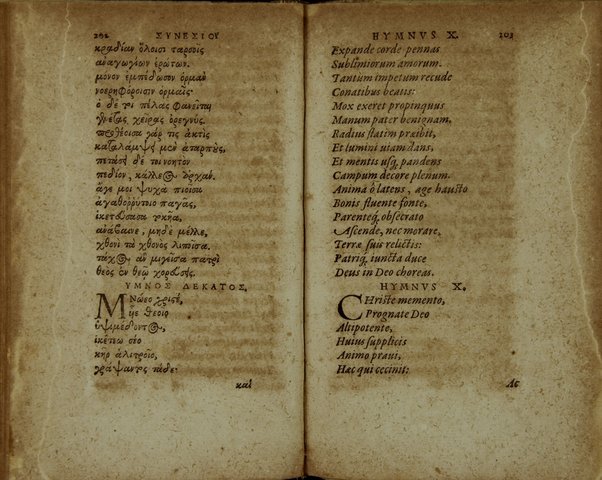 202 ΣΥΝΕΣΙΟΥ
κραδίαν ὅλοισι ταρσοῖς
ἀναγωγίων ἐρώτων.
μόνον ἐμπέδωσον ὁρμαὶ
νοερηφόροισιν ὁρμαῖς·
ὁ δέ τοι πέλας φανεῖται
χεῖρας ὀρεγνύς.
προθέοισα γάρ τις ἀκτὶς
καταλάμψει μὲν ἀταρποὺς,
πετάσῃ δέ τοι νοητὸν
πεδίον, κάλλεος ἀρχάν.
ἄγε μοι ψυχὰ πιοῖσα
ἀγαθορρύτοιο παγᾶς,
ἱκετεύσασα τοκῆα,
ἀνάβαινε, μηδὲ μέλλε,
χθονὶ τὰ χθονὸς λιποῖσα.
τάχος ἂν μιγεῖσα πατρὶ
θεὸς ἐν θεῷ χορεύσῃς.
ΥΜΝΟΣ ΔΕΚΑΤΟΣ.
ΜΝώεο χριστέ,
υἱὲ θεοῖο
ὑψιμέδοντος,
ἱκέτεω σέο
κὴρ ἀλιτροῖο,
γράψαντος τάδε·
καὶ
HYMNVS X. 203
Expande corde pennas
Sublimiorum amorum.
Tantùm impetum recude
Conatibus beatis:
Mox exeret propinquus
Manum pater benignam,
Radius statim præibit,
Et lumini uiam dans,
Et mentis usq; pandens
Campum decore plenum.
Anima ô latens, age hausto
Bonis fluente fonte,
Parenteq; obsecrato
Ascende, nec morare,
Terræ suis relictis:
Patriq; iuncta duce
Deus in Deo choreas.
HYMNVS X.
CHriste memento,
Prognate Deo
Altipotente,
Huius supplicis
Animo praui,
Hæc qui cecinit:
Ac